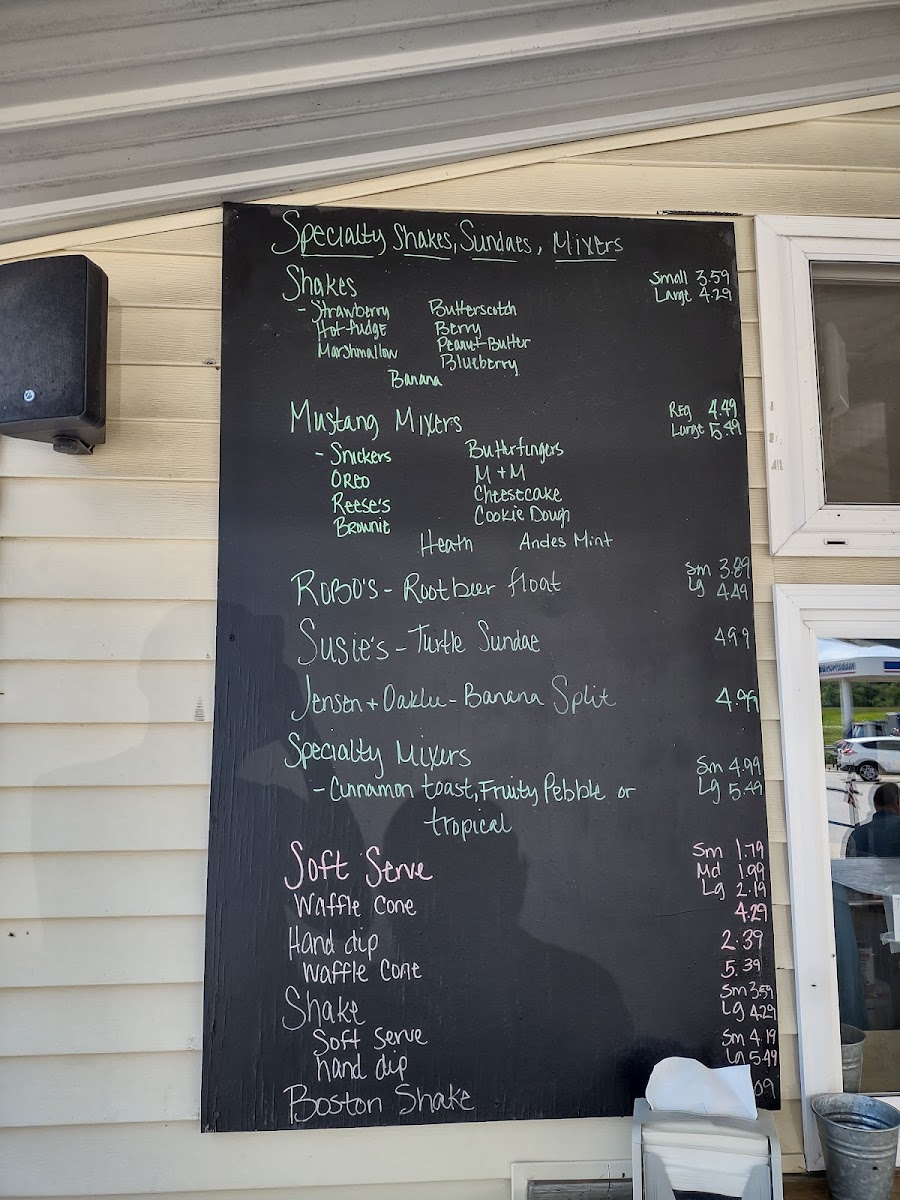 Specialty Shakes, Sundaes, Mixers
Shakes Small 3.59
Large 4.29
- Strawberry Butterscotch
Hot fudge Berry
Marshmallow Peanut Butter
Blueberry
Banana
Mustang Mixers Reg 4.49
Large 5.49
- Snickers Butterfingers
OREO M+M
Reese's Cheesecake
Brownie Cookie Dough
Heath Andes Mint
ROBO'S - Rootbeer float Sm 3.89
Lg 4.49
Susie's - Turtle Sundae 4.99
Jensen + Oaklee - Banana Split 4.99
Specialty Mixers Sm 4.99
- Cinnamon toast, Fruity Pebble or Lg 5.49
tropical
Soft Serve Sm 1.79
Md 1.99
Lg 2.19
Waffle Cone 4.29
Hand dip 2.39
Waffle Cone 5.39
Shake Sm 3.59
Lg 4.29
Soft Serve Sm 4.19
hand dip Lg 5.49
Boston Shake 09